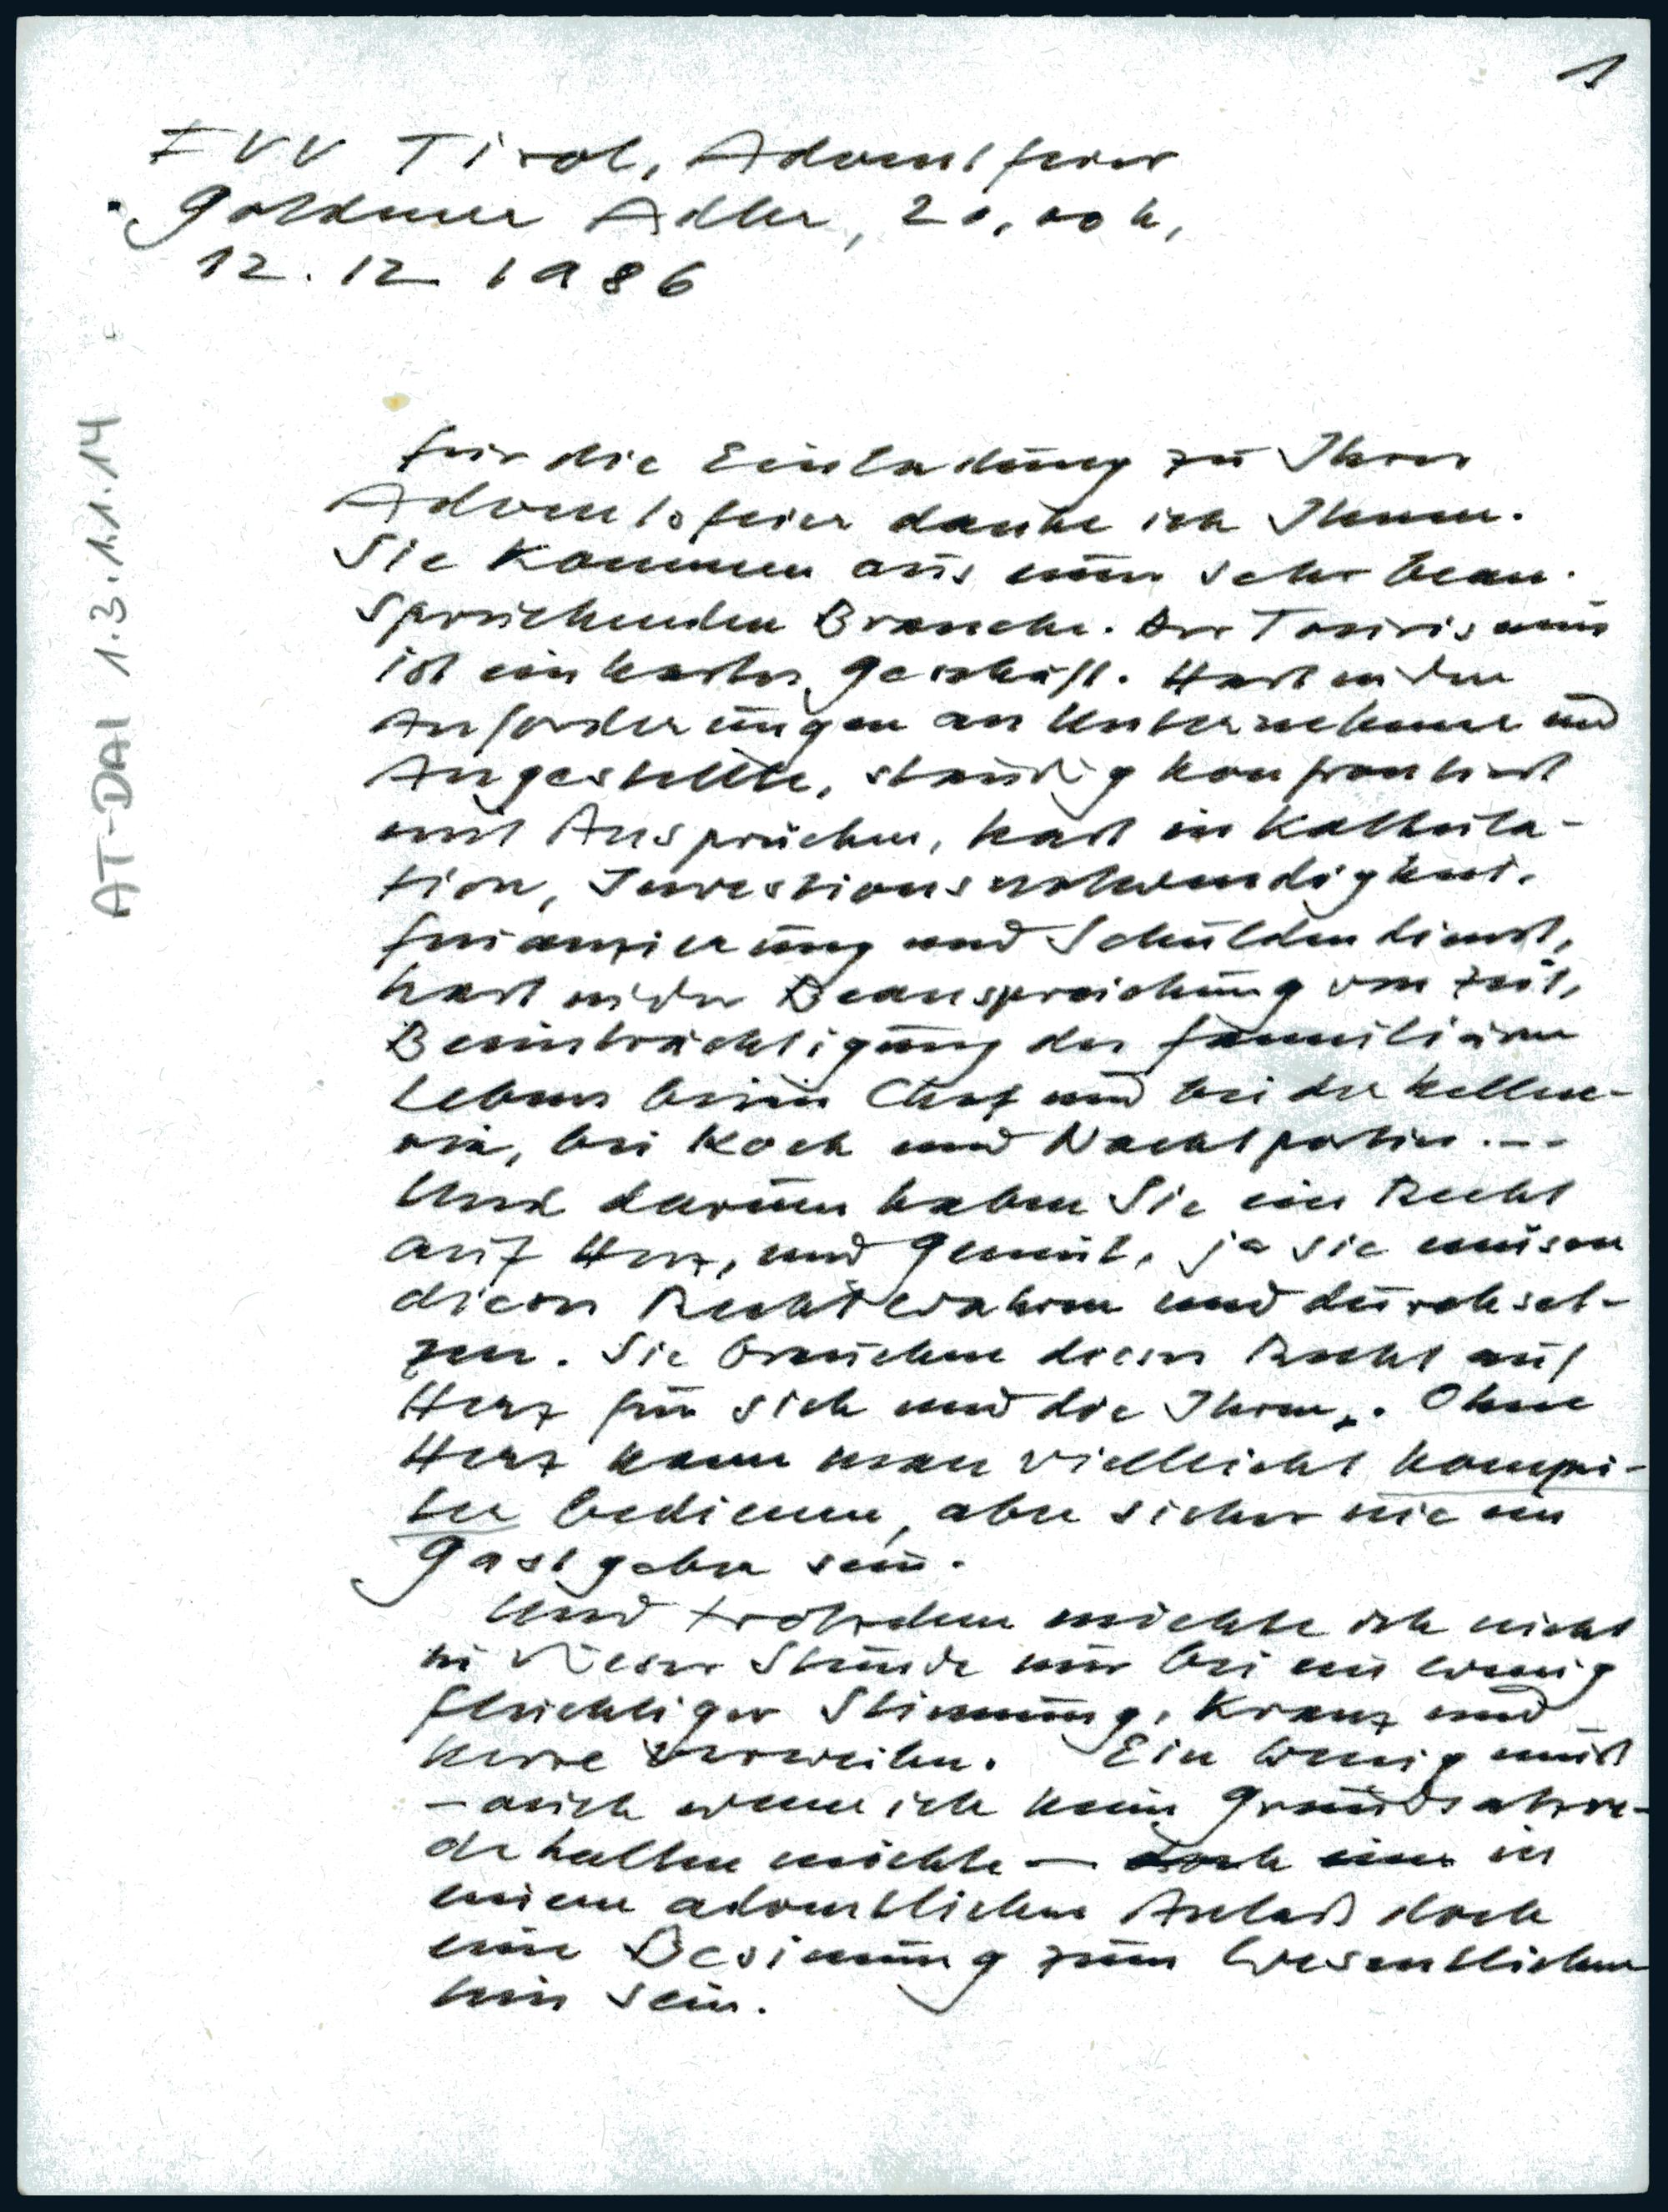 1
FVV Tirol, Adventfeier
Goldener Adler, 20.00 h,
12.12 1986
AT-DAI 1.3.1.1.14
für die Einladung zu Ihrer
Adventsfeier danke ich Ihnen.
Sie kommen aus einer sehr bean-
spruchenden Branche. Der Tourismus
ist ein hartes Geschäft. Hart in den
Anforderungen an Unternehmer und
Angestellte, ständig konfrontiert
mit Ansprüchen, hart in Kalkula-
tion, Investionsnotwendigkeit,
finanzierung und Schuldendienst,
hart in der Beanspruchung von Zeit,
Beeinträchtigung des familiären
Lebens beim Chef und bei der Kellne-
rin, bei Koch und Nachtportier...
Und darum haben Sie ein Recht
auf Herz, und Gemüt, ja sie müssen
dieses Recht wahren und durchset-
zen. Sie brauchen dieses Recht auf
Herz für sich und die Ihren. Ohne
Herz kann man vielleicht Kompu-
ter bedienen, aber sicher nie ein
Gastgeber sein.
Und trotzdem möchte ich nicht
in dieser Stunde nur bei ein wenig
flüchtiger Stimmung, Kranz und
Kerze verweilen. Ein wenig muß
- auch wenn ich keine Grundsatzre-
de halten möchte - doch eine in
einem adventlichen Anlaß doch
eine Besinnung zum Wesentlichen
hin sein.